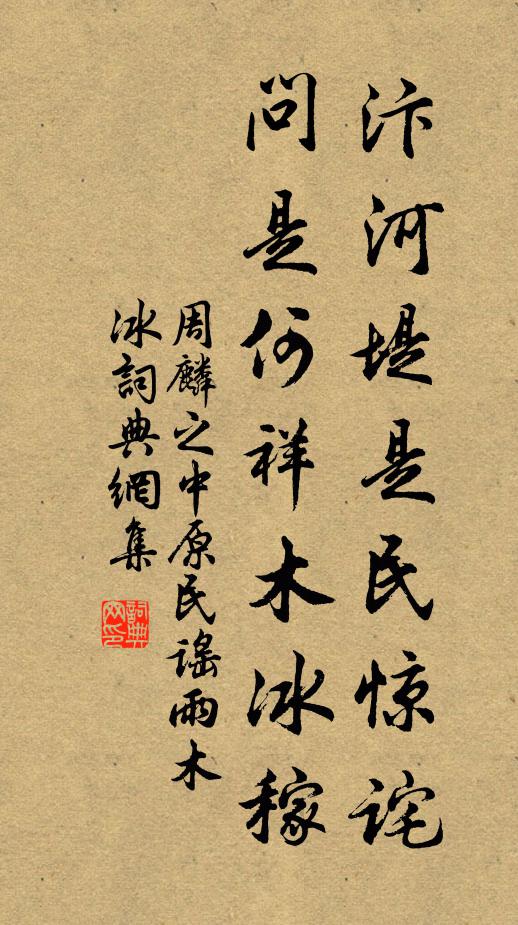 汴河堤是民惊诧
問是何祥木冰稼
周麟之中原民謠雨木
冰詞典網集
詞典
网印